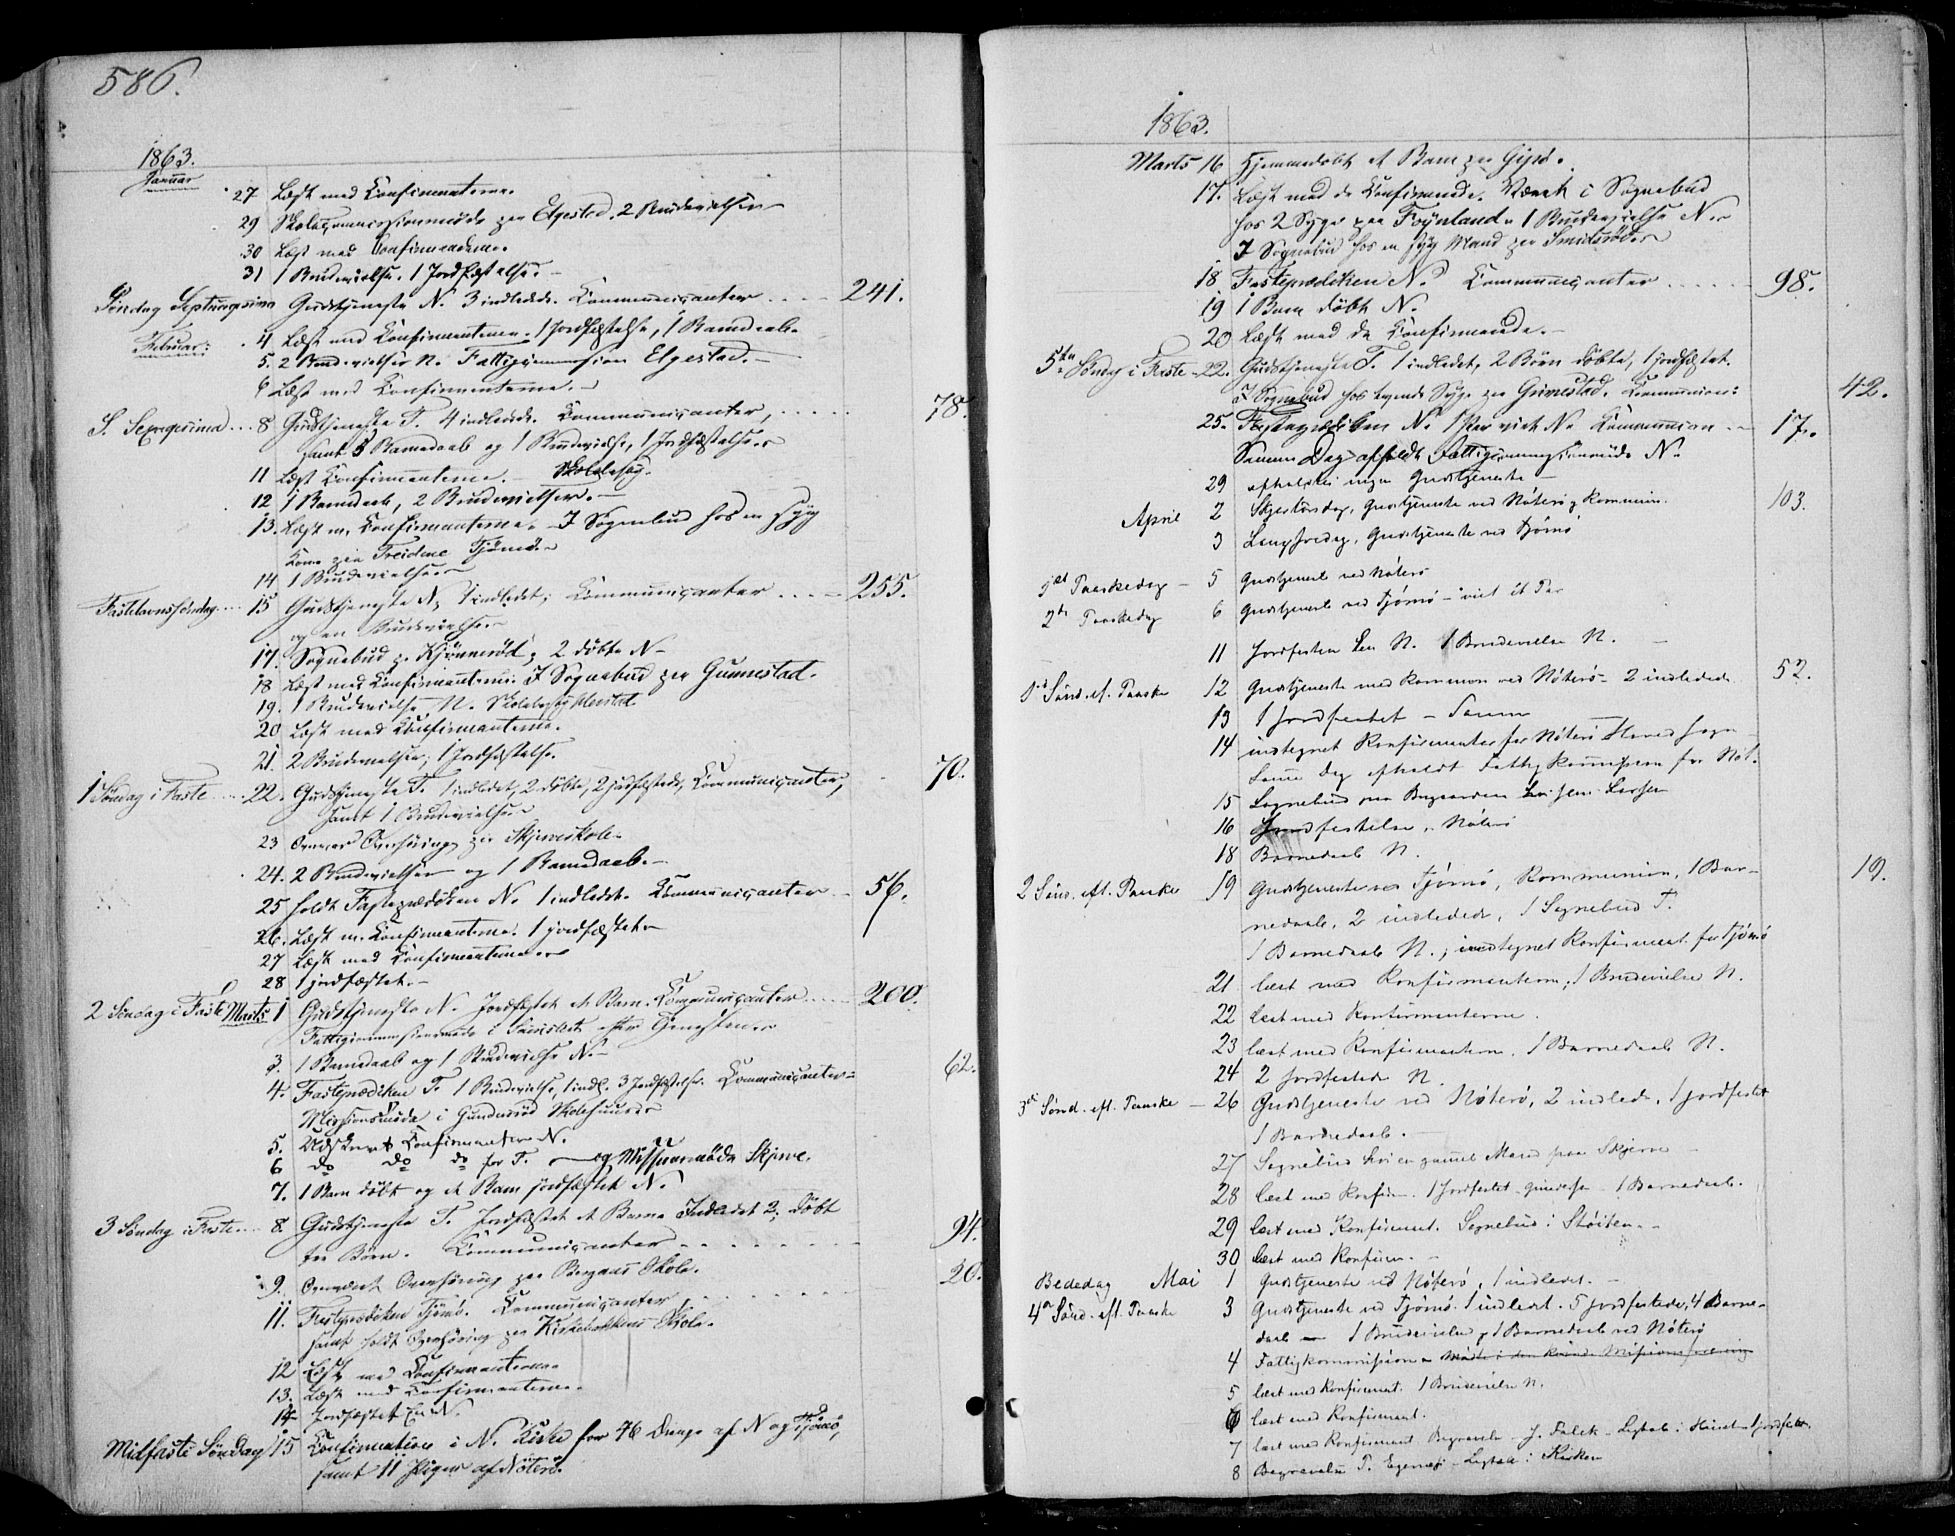 586.
1863.
Januar
27 Læst med Confirmanterne.
29 Skolecommissionsmøde paa Elgestad. 2 Brudevielser
30 Læst med Confirmanterne.
31 1 Brudevielse. 1 Jordfæstelse.
Søndag Septuagesima Gudstjeneste N. 3 indledede. Communicanter .... 241.
Februar: 4. Læst med Confirmanterne. 1 Jordfæstelse, 1 Barnedaab.
5. 2 Brudevielser N. Fattigcommission Elgestad.
6 Læst med Confirmanterne.
S. Sexagesima ... 8 Gudstjeneste T. 4 indledede. Communicanter, ..... 78.
samt 3 Barnedaab og 1 Brudevielse, 1 Jordfæstelse.
11 Læst Confirmanterne.
12 1 Barnedaab, 2 Brudevielser.
13. Læst m. Confirmanterne. I Sognebud hos en syg
Kone paa Treidene Tjømö.
14 1 Brudevielse
Fastelavnssöndag ... 15 Gudstjeneste N, 1 indledet; Communicanter .... 255.
og en Brudevielse.
17. Sognebud p. Kjönneröd; 2 döbte N.
18 Læst med Confirmanterne. I Sognebud paa Gunnestad.
19. 1 Brudevielse N.
20 Læst med Confirmanterne.
21. 2 Brudevielser; 1 Jordfæstelse.
1 Söndag i Faste .... 22. Gudstjeneste T. 1 indledet, 2 döbte, 2 jordfæstede, Communicanter, 70.
samt 1 Brudevielse.
23 Overhöring paa Skjerveskole.
24. 2 Brudevielser og 1 Barnedaab.
25 holdt Fasteprædiken N. 1 indledet. Communicanter .. 56.
26. Læst m. Confirmanterne. 1 jordfæstet
27 Læst med Confirmanterne
28 1 jordfæstet.
2 Söndag i Faste Marts 1 Gudstjeneste N. Jordfæstet et Barn. Communicanter ..... 200.
Fattigcommissionsmøde i efter Gudstjenesten.
3. 1 Barnedaab og 1 Brudevielse N.
4. Fasteprædiken T. 1 Brudevielse, 1 indl. 3 Jordfæstelser. Communicanter 62.
Missionsmöde i Gunderöd Skolehuus
5. Udskrevet Confirmanter N.
6 do do do for T. og Missionsmöde Skjerve.
7. 1 Barn döbt og et Barn jordfæstet N.
3 Söndag i Faste ... 8 Gudstjeneste T. Jordfæstet et Barn. Indledet 2; döbt
tre Börn. Communicanter ........ 94.
9. Overhöring paa Bergans Skole. 20.
11. Fasteprædiken Tjömö. Communicanter,
samt holdt Overhöring paa Kirkebakkens Skole.
12 Læst med Confirmanterne
13. Læst med Confirmanterne.
14 Jordfæstet En N.
Midfaste Söndag 15 Confirmation i N. Kirke for 46 Drenge af N og Tjömö,
samt 11 Piger af Nöterö.
1863.
Marts 16 Hjemmedöbt et Barn paa Gipö.
17. Læst med de Confirmerede. Været i Sognebud
hos 2 Syge paa Foynland. 1 Brudevielse N.
I Sognebud hos en syg Mand paa Smidsröd
18. Fasteprædiken N. Communicanter ...... 98.
19 1 Barn döbt N.
20 Læst med de Confirmerede.
5te Söndag i Faste 22. Gudstjeneste T. 1 indledet, 2 Börn döbte, 1 jordfæstet.
I Sognebud hos tvende Syge paa Grimestad. Communion: 42.
25. Fasteprædiken N. 1 Par viet N. Communion .. 17.
Samme Dag afholdt Fattigcommissionsmöde N.
29 afholdtes ingen Gudstjeneste
April 2 Skjertorsdag, Gudstjeneste ved Nöterö og kommunion. 103.
3 Langfredag, Gudstjeneste ved Tjömö
1st Paaskedag 5 Gudstjeneste ved Nöterö
2de Paaskedag 6 Gudstjeneste ved Tjömö – viet et Par
11 Jordfestet Een N. 1 Brudevielse N.
1ste Sönd. ef. Paaske 12 Gudstjeneste med kommunion ved Nöterö. 2 indledede 52.
13 1 Jordfestet
14 indtegnet Konfirmanter for Nöterö Hovedsogn
Samme Dag afholdt Fattigkommission for Nöt.
15 Sognebud
16 Jordfestelse. Nöterö
18 Barnedaab N.
2 Sönd. eft. Paaske 19 Gudstjeneste ved Tjömö, Kommunion, 1 Bar- 19.
nedaab, 2 indledede, 1 Sognebud T.
1 Barnedaab N.; indtegnet Konfirmant. for Tjömö
21 læst med Konfirmanterne, 1 Brudevielse N.
22 læst med Konfirmanterne.
23 læst med Konfirmanterne. 1 Barnedaab N.
24 2 Jordfestede N.
3die Sönd. eft. Paaske – 26 Gudstjeneste ved Nöterö, 2 indledt. 1 jordfestet
1 Barnedaab.
27 Sognebud hos en gammel Mand paa Skjerve
28 læst med Konfirm. 1 Jordfestet 1 Barnedaab.
29 læst med Konfirmant. Sognebud i Stöiten.
30 læst med Konfirm.
Bededag Mai 1 Gudstjeneste ved Nöterö, 1 indledet.
4de Sönd. eft. Paaske 3 Gudstjeneste ved Tjömö. 1 indledet. 5 Jordfestede, 4 Barne-
daab 1 Brudevielse og 1 Barnedaab ved Nöterö
4 Fattigkommission
5 læst med Konfirmant. 1 Brudevielse N.
6 læst med Konfirmant.
7 læst med Konfirmant Begravelse J. Falck – Ligtale i Huset – 1 jordfestet.
8 Begravelse T. Ligtale i Kirken